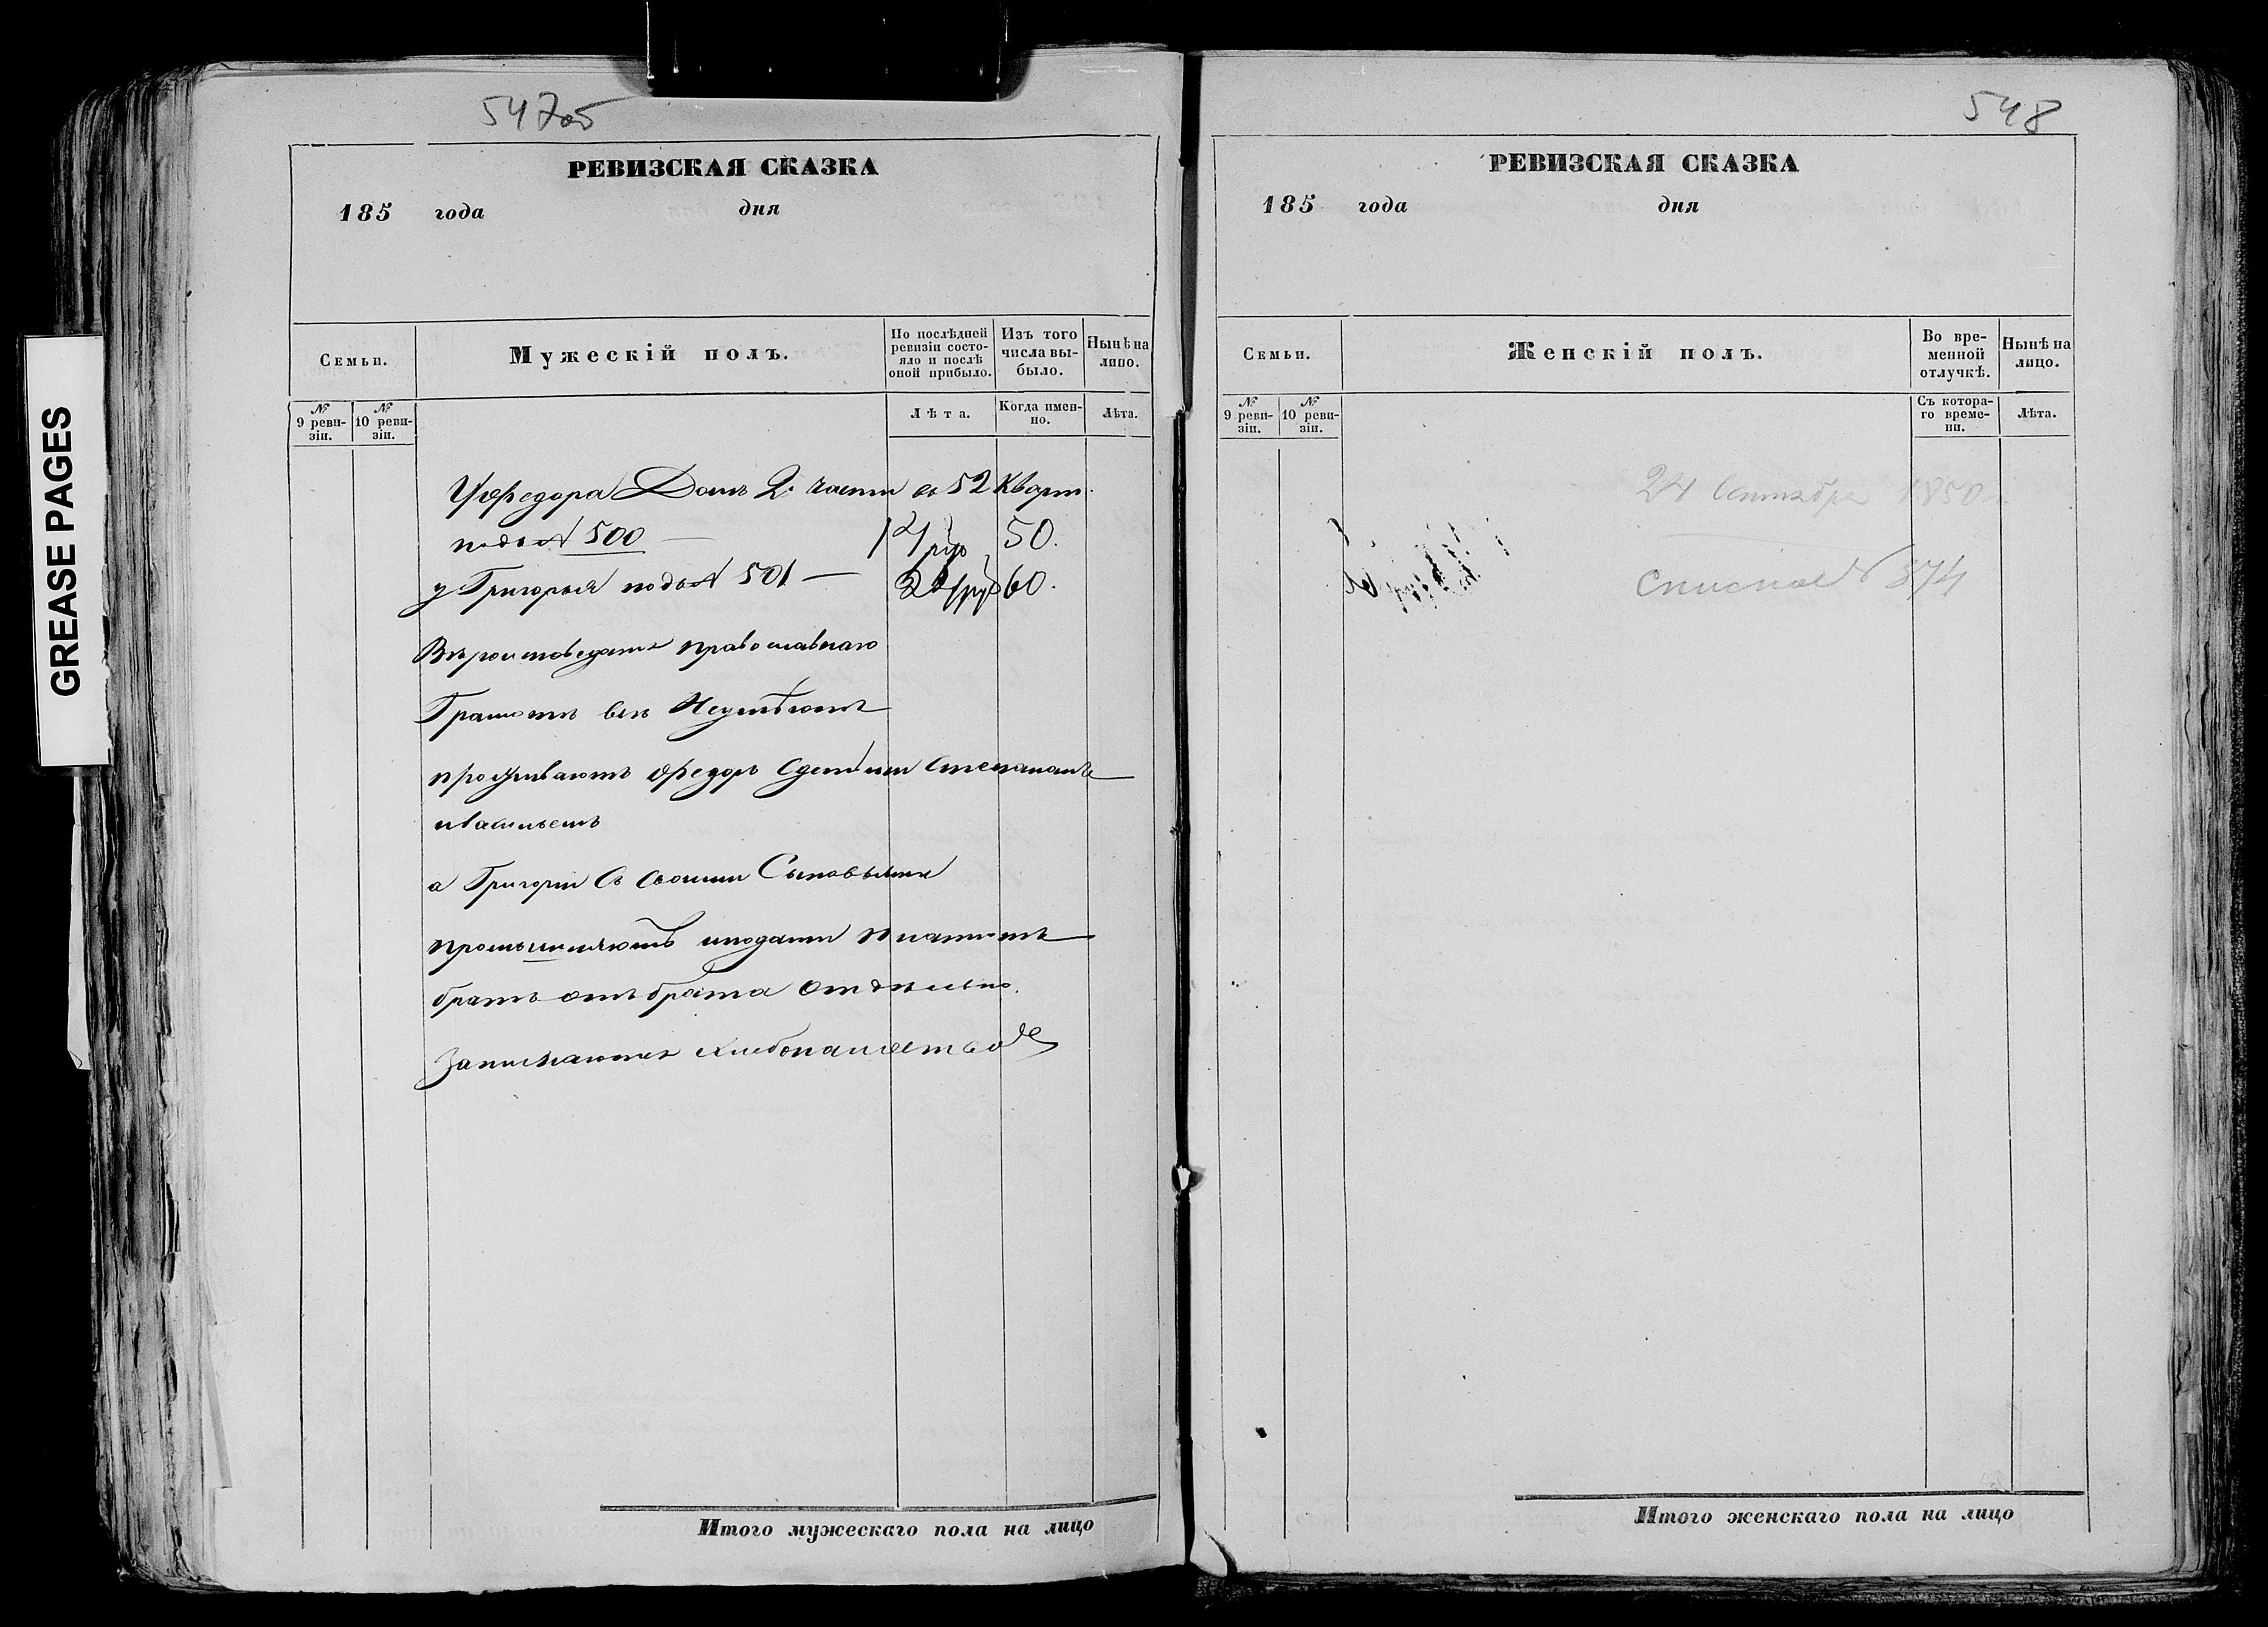 GREASE PAGES
547об
РЕВИЗСКАЯ СКАЗКА
185 года дня
Семьи.
Мужескій полъ.
По послѣдней ревизіи состо-
яло и послѣ оной прибыло.
Изъ того числа вы-
было.
Нынѣ на лицо.
№ 9 реви-
зіи.
№ 10 реви-
зіи.
Лѣта.
Когда имен-
но.
Лѣта.
У Федора Домъ 2. части въ 52 Кварт.
подъ № 500 — 14 руб 50.
у Григорья подъ № 501 — 22 руб 60.
Вѣроисповеданія православнаго
Грамотѣ всѣ Неумѣютъ
проживаютъ Федоръ Сдетьми Степаномъ
иВасильемъ
а Григорій Съ Своими Сыновьями
промышляютъ иподати платютъ
братъ отъ брата отдѣльно.
Занимаются хлебопашествомъ
Итого мужескаго пола на лицо
548
РЕВИЗСКАЯ СКАЗКА
185 года дня
Семьи.
Женскій полъ.
Во вре-
менной
отлучкѣ.
Нынѣ на
лицо.
№ 9 реви-
зіи.
№ 10 реви-
зіи.
Съ котора-
го време-
ни.
Лѣта.
24 Сентября 1850
Списка № 874
Итого женскаго пола на лицо